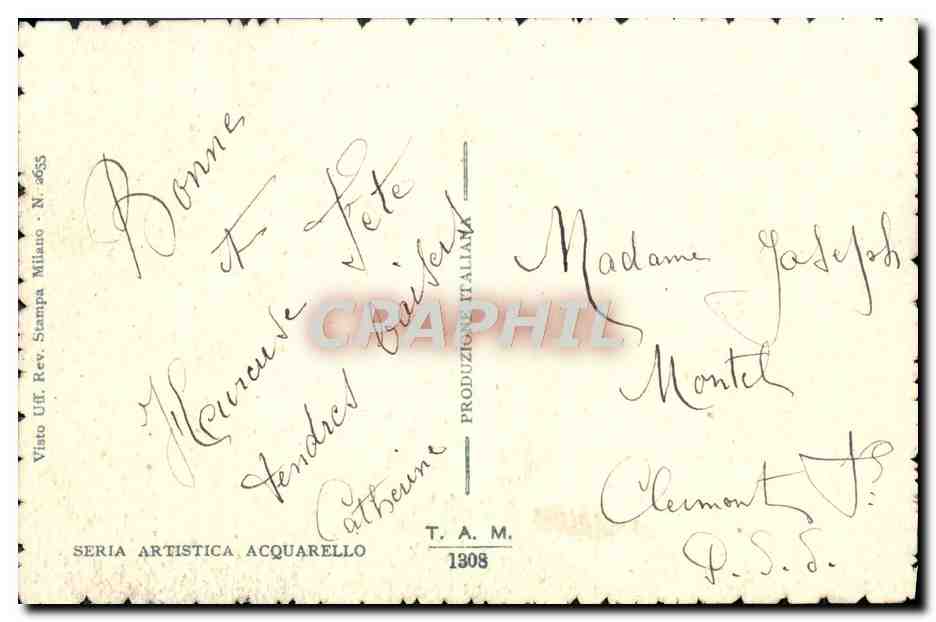 Bonne
Heureuse
&
Fête
tendres baisers
Catherine
Visto Uff. Rev. Stampa Milano - N. 2655
SERIA ARTISTICA ACQUARELLO
PRODUZIONE ITALIANA
T. A. M.
1308
Madame Joseph
Montel
Clermont
CPAPHIL